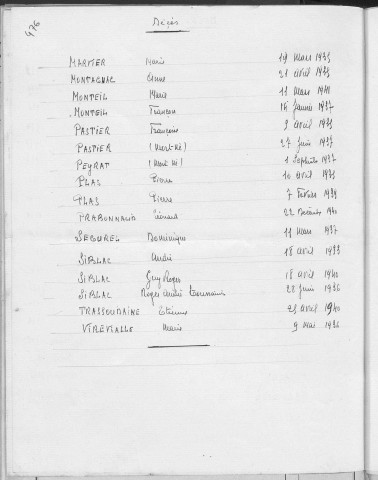 476
Décès
MARTIER Marie 19 Mars 1935
MONTAGNAC Anna 21 avril 1935
MONTEIL Marie 11 Mars 1941
MONTEIL François 14 Janvier 1937
PASTIER Françoise 9 avril 1935
PASTIER (Mort né) 27 Juin 1937
PEYRAT (Mort né) 1 Septembre 1937
PLAS Pierre 10 avril 1935
PLAS Pierre 7 Février 1939
PRABONNAUD Léonard 22 Décembre 1940
SEGUREL Dominique 11 Mars 1937
SIBLAC André 18 avril 1933
SIBLAC Guy Roger 18 avril 1940
SIBLAC Roger André 28 Juin 1936
TRASSOUDAINE Etienne 23 avril 1940
VIREVIALLE Marie 9 Mai 1936